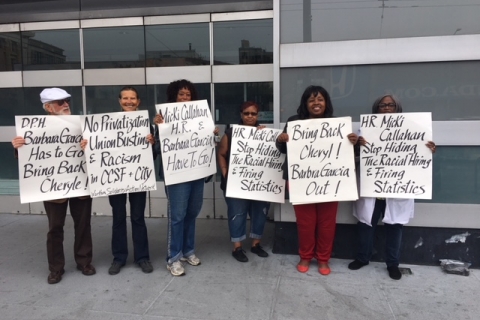 DPH
Barbara Garcia
Has to Go!
Bring Back
Cheryle!
No Privatization
Union Busting
& Racism
in CCSF + City
Micki Callahan
H.R. &
Barbara Garcia
Have to Go!
HR Micki
Callahan
Stop Hiding
The Racial Hiring
& Firing
Statistics
Bring Back
Cheryl!
Barbara Garcia
Out!
HR Micki
Callahan
Stop Hiding
The Racial Hiring
& Firing
Statistics